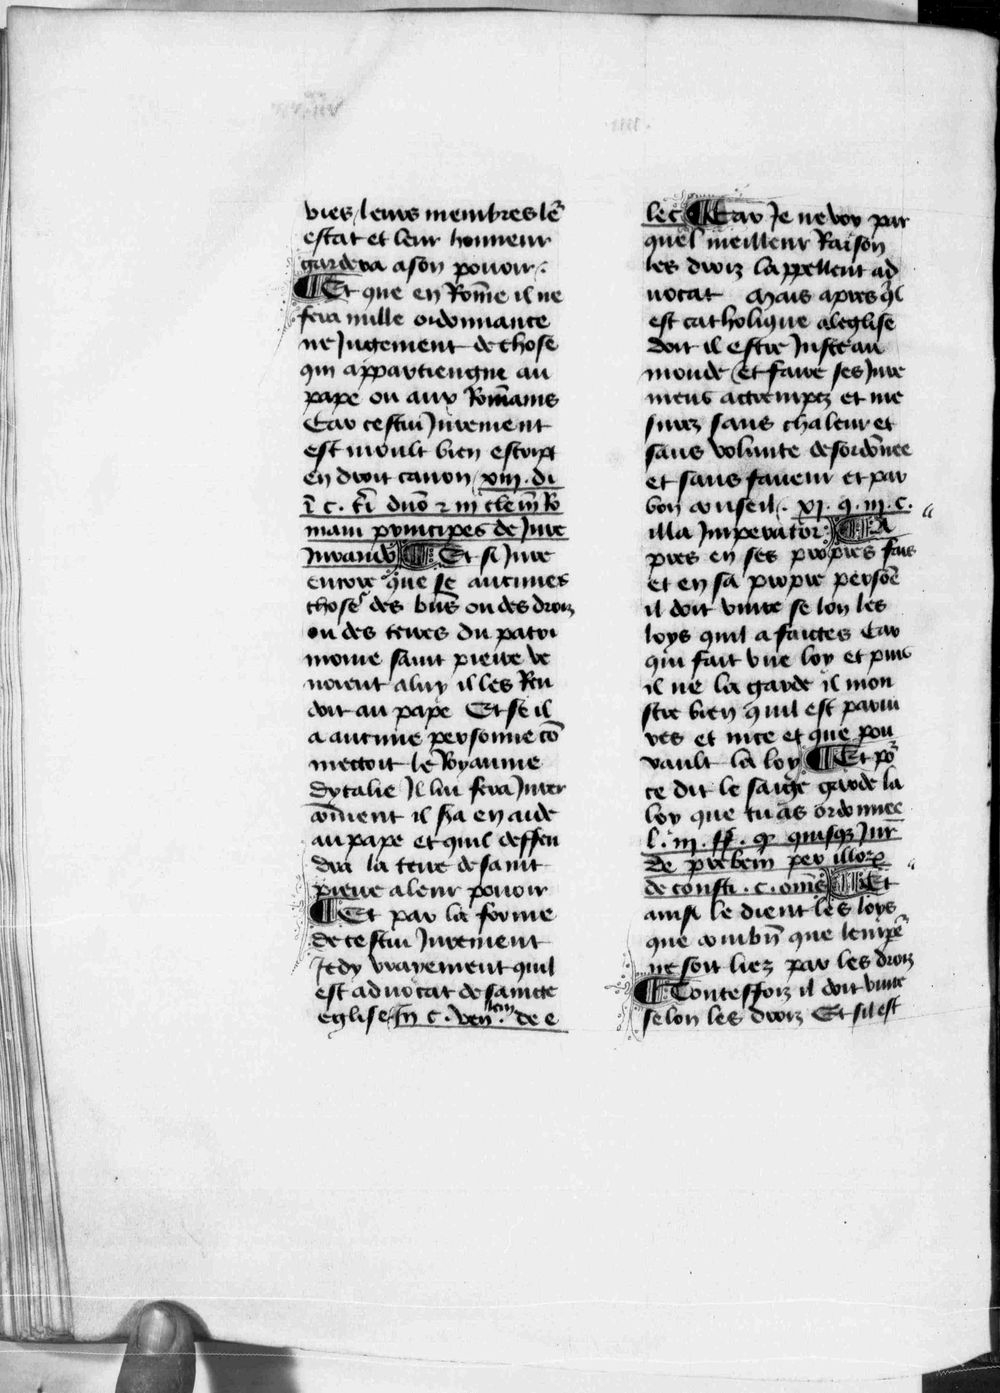 vies / leurs membres le᷒
estat et leur honneur
gardera a son pouoir .
¶ Et que en Rom̃e il ne
fera nulle ordonnance
ne Jugement de chose
qui appartiengne au
pape ou aux Rom̃ains
Car cestui Jurement
est moult bien escript
en droit canon / xiii . di
c . duõ ⁊ in clem̃ Ro
mani principes de Jure
Jurando ¶ Et si Jure
encore que se aucunes
choses des biẽs ou des droiz
ou des terres du patri
moine saint pierre ve
noient a luy il les Ren
doit au pape Et se il
a aucune personne cõ
mettoit le Royaume
dytalie Il lui fera Jurer
cõment il sra en aide
au pape et quil deffen
dra la terre de saint
pierre a leur pouoir
¶ Et par la forme
de cestui Jurement
Je dy vrayement quil
est aduocat de saincte
eglise / c . ven de e
lec ¶ Car Je ne voy par
quel meilleur Raison
les droiz lappellent ad
uocat Mais apres q̃l
est catholique a leglise
doit il estre Juste au
monde Et faire ses Jure
mens actrempez et me
surez sans chaleur et
sans volunte desordõnee
et sans faueur et par
bon conseil . xi . q . iii . c .
illa Imperator ¶ A
pres en ses propres fais
et en sa propre persõe
il doit viure selon les
loys quil a faictes Car
qui fait vne loy et puis
il ne la garde il mon
stre bien quil est pariu
res et nice et que pou
vault la loy ¶ Et po᷒
ce dit le saige garde la
loy que tu as ordonnee
l . iii . ff . q̃ quisq̃ Jur̃
de preben per illorꝝ
de consti . c . om̃s ¶ Et
ainsi le dient les loys
que combñ que lempe᷒
ne soit liez par les droiz
¶ Touteffoiz il doit viure
selon les droiz Et sil est